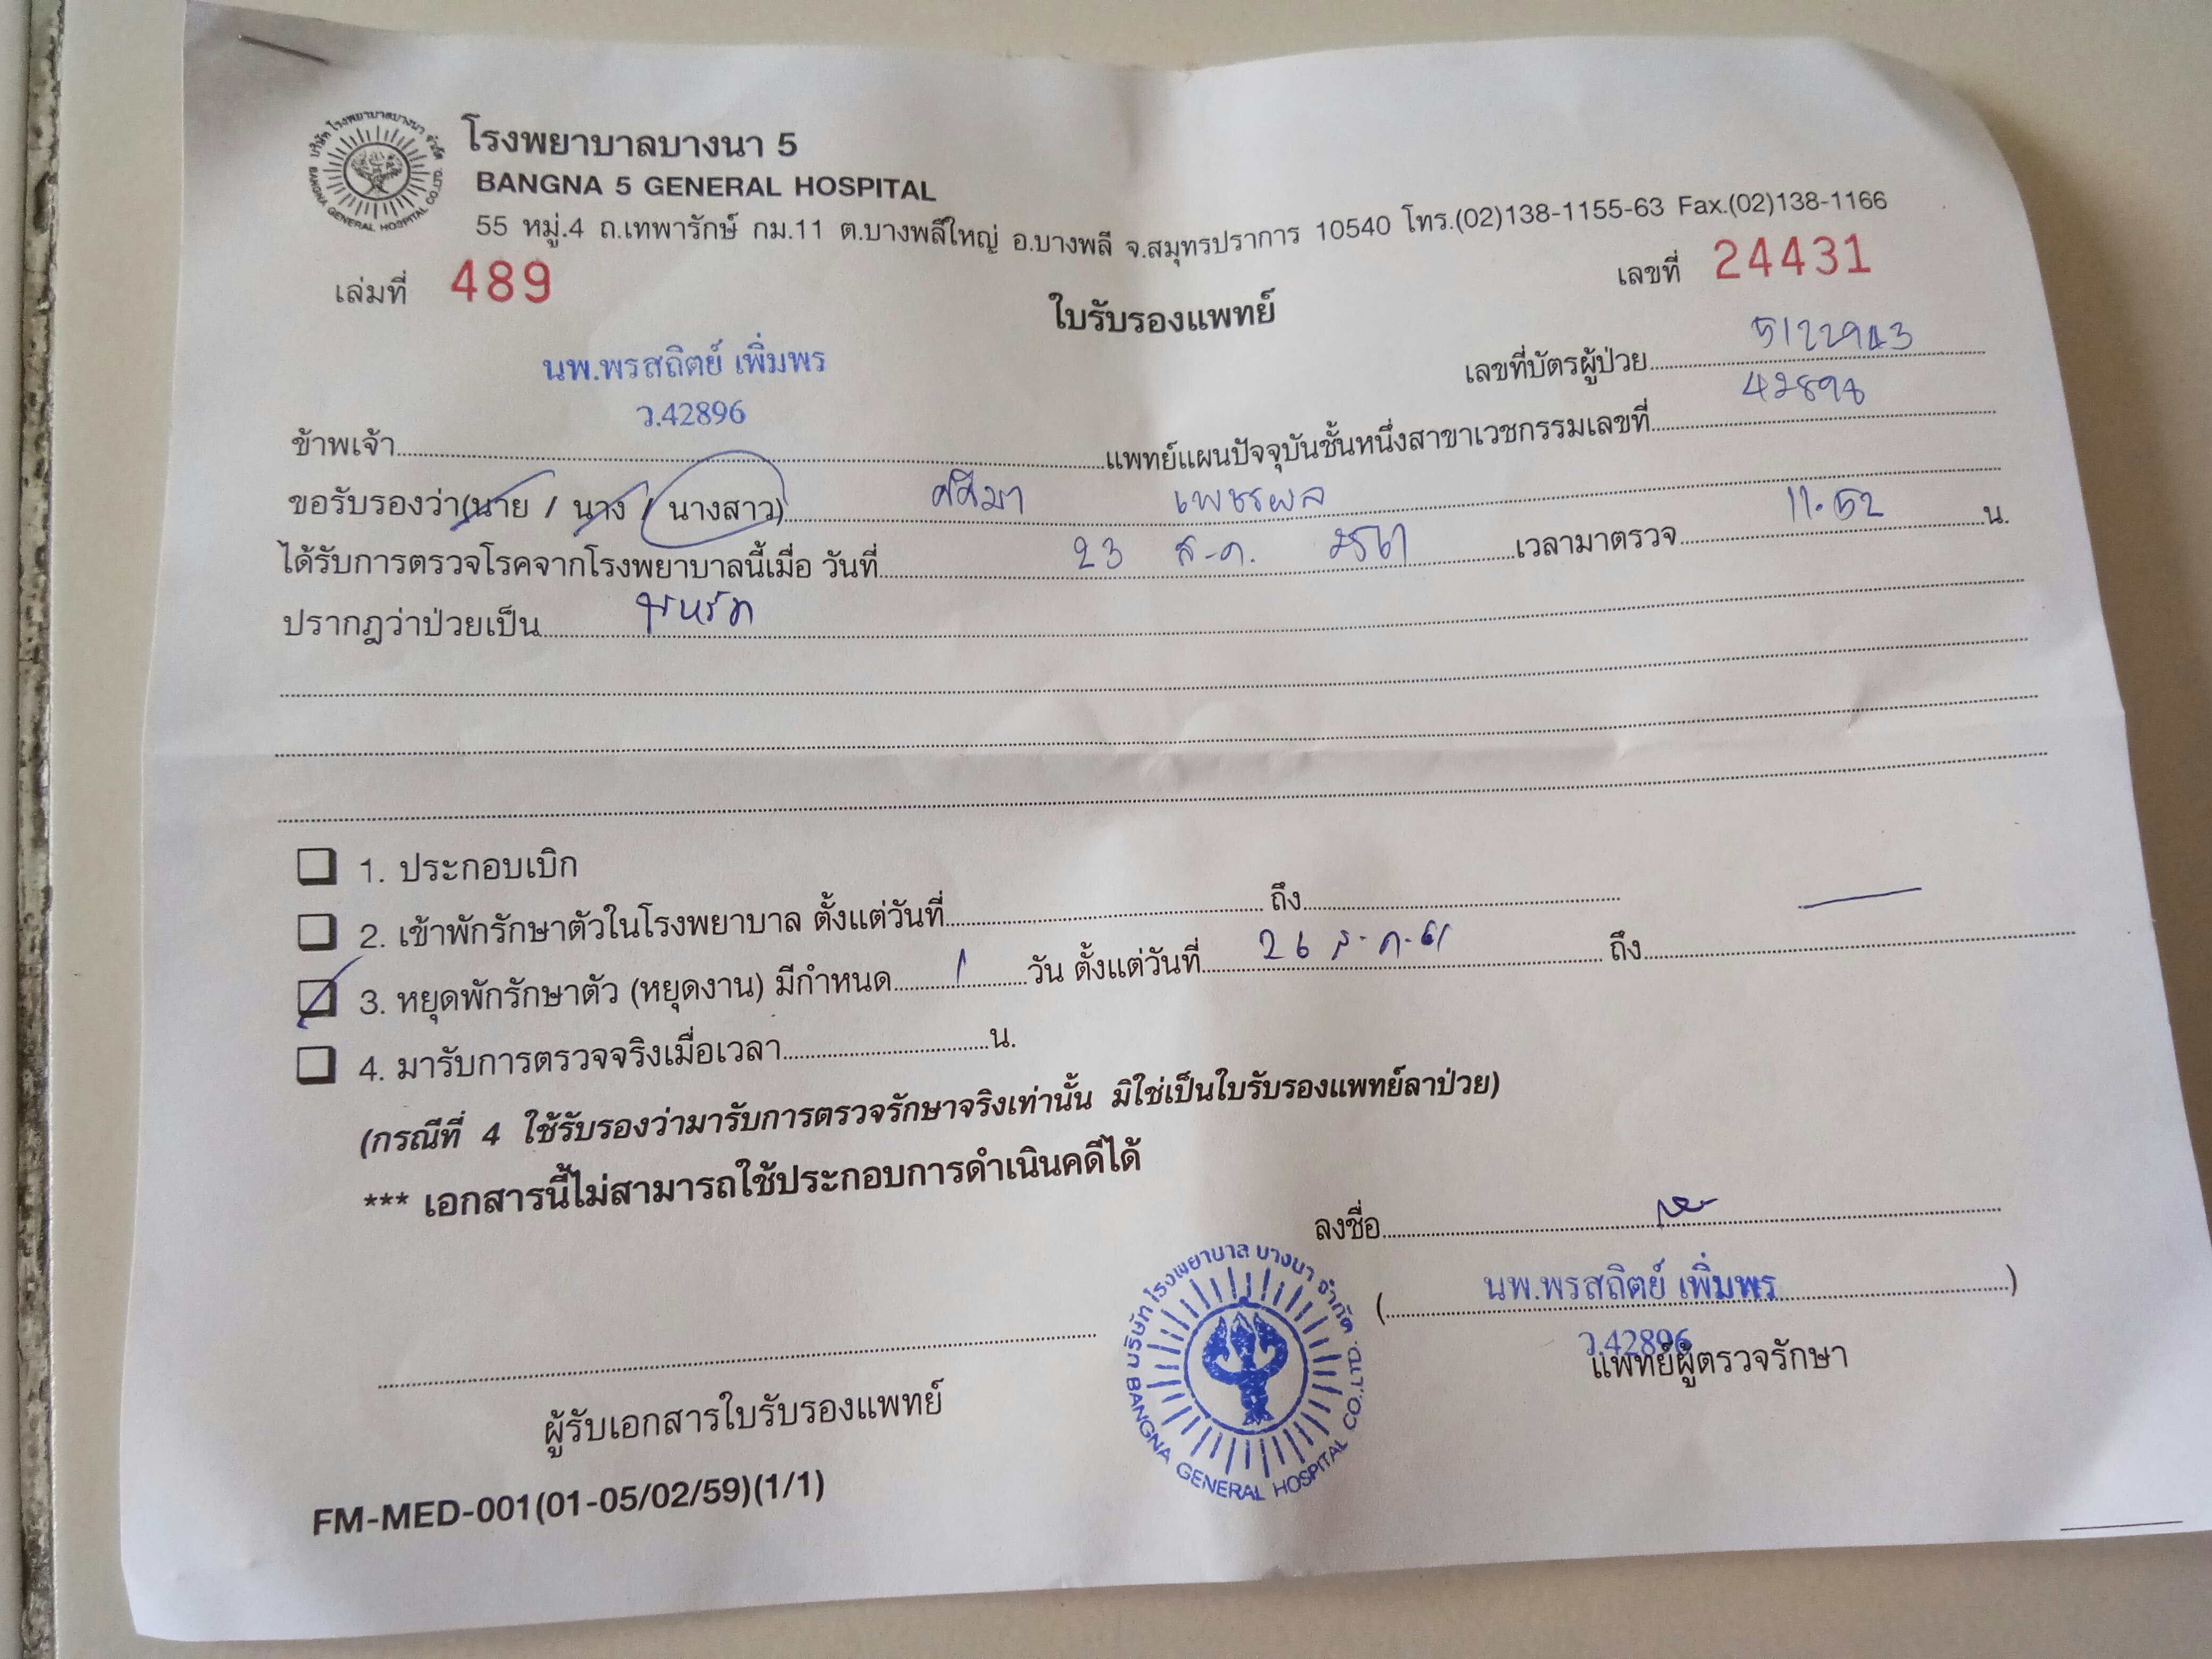 บริษัท โรงพยาบาลบางนา จำกัด
BANGNA GENERAL HOSPITAL CO.,LTD.
โรงพยาบาลบางนา 5
BANGNA 5 GENERAL HOSPITAL
55 หมู่.4 ถ.เทพารักษ์ กม.11 ต.บางพลีใหญ่ อ.บางพลี จ.สมุทรปราการ 10540 โทร.(02)138-1155-63 Fax.(02)138-1166
เล่มที่ 489
เลขที่ 24431
ใบรับรองแพทย์
เลขที่บัตรผู้ป่วย 5122943
นพ.พรสถิตย์ เพิ่มพร
ว.42896
ข้าพเจ้า แพทย์แผนปัจจุบันชั้นหนึ่งสาขาเวชกรรมเลขที่ 42896
ขอรับรองว่า(นาย / นาง / นางสาว) เพชรผล
ได้รับการตรวจโรคจากโรงพยาบาลนี้เมื่อ วันที่ 23 ส.ค. 2561 เวลามาตรวจ 11.52 น.
ปรากฎว่าป่วยเป็น
1. ประกอบเบิก
2. เข้าพักรักษาตัวในโรงพยาบาล ตั้งแต่วันที่ ถึง
3. หยุดพักรักษาตัว (หยุดงาน) มีกำหนด 1 วัน ตั้งแต่วันที่ 26 ส.ค.61 ถึง —
4. มารับการตรวจจริงเมื่อเวลา น.
(กรณีที่ 4 ใช้รับรองว่ามารับการตรวจรักษาจริงเท่านั้น มิใช่เป็นใบรับรองแพทย์ลาป่วย)
*** เอกสารนี้ไม่สามารถใช้ประกอบการดำเนินคดีได้
ลงชื่อ
(นพ.พรสถิตย์ เพิ่มพร)
ว.42896
แพทย์ผู้ตรวจรักษา
บริษัท โรงพยาบาล บางนา จำกัด
BANGNA GENERAL HOSPITAL CO.,LTD.
ผู้รับเอกสารใบรับรองแพทย์
FM-MED-001(01-05/02/59)(1/1)